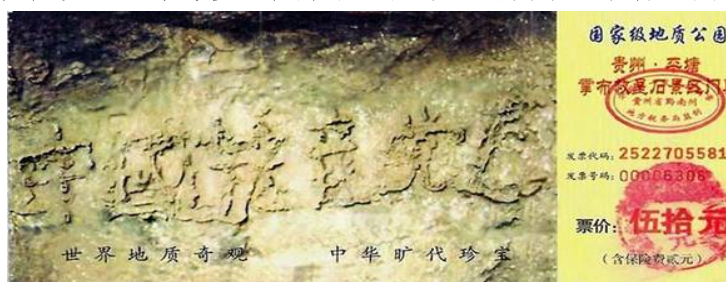 中國共产党亡
世界地质奇观 中华旷代珍宝
国家级地质公园
贵州·平塘
掌布救星石景区门
贵州省黔南州
地方税务局监制
发票代码: 2522705581
发票号码: 00006306
票价: 伍拾元
(含保险费贰元)